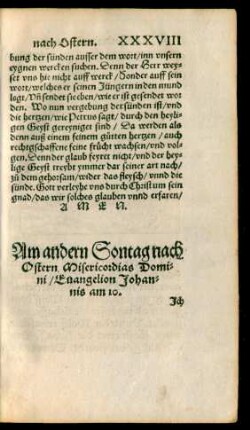 nach Ostern. XXXVIII
bung der sünden ausser dem wort/inn vnsern
eygnen wercken suchen. Denn der Herr wey-
set vns hie nicht auff werck/Sonder auff sein
wort/welches er seinen Jüngern in den mund
legt/Vn̄ sendet sie eben/wie er ist gesendet wor
den. Wo nun vergebung der sünden ist/vnd
die hertzen/wie Petrus sagt/durch den heyli-
gen Geyst gereyniget sind/Da werden als
denn auß einem feinem gütten hertzen/auch
rechtschaffene feine frücht wachsen/vnd vol-
gen. Denn der glaub feyret nicht/vnd der hey-
lige Geyst treybt ymmer dar seiner art nach/
zů dem gehorsam/wider das fleysch/vnnd die
sünde. Gott verleyhe vns durch Christum sein
gnad/das wir solches glauben vnnd erfaren/
A M E N.
Am andern Sontag nach
Ostern Misericordias Domi-
ni/Euangelion Johan-
nis am 10.
Ich